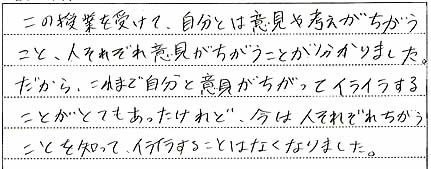 この授業を受けて、自分とは意見や考えがちがう
こと、人それぞれ意見がちがうことが分かりました。
だから、これまで自分と意見がちがってイライラする
ことがとてもあったけれど、今は人それぞれちがう
ことを知って、イライラすることはなくなりました。